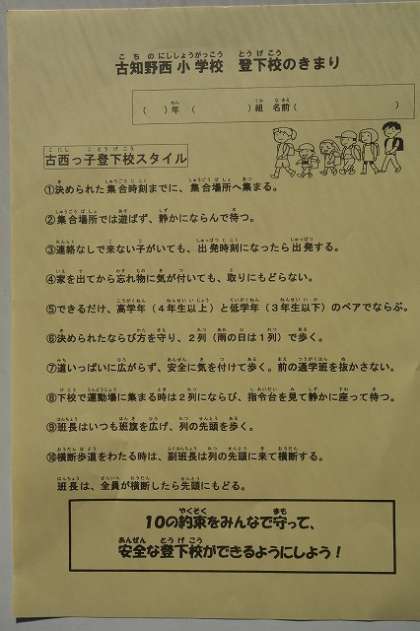 古知野西小学校　登下校のきまり
(　　)年　(　　　　)組　名前(　　　　　　　　)
古西っ子登下校スタイル
①決められた集合時刻までに、集合場所へ集まる。
②集合場所では遊ばず、静かにならんで待つ。
③連絡なしで来ない子がいても、出発時刻になったら出発する。
④家を出てから忘れ物に気が付いても、取りにもどらない。
⑤できるだけ、高学年（４年生以上）と低学年（３年生以下）のペアでならぶ。
⑥決められたならび方を守り、２列（雨の日は１列）で歩く。
⑦道いっぱいに広がらず、安全に気を付けて歩く。前の通学班を抜かさない。
⑧下校で運動場に集まる時は２列にならび、指令台を見て静かに座って待つ。
⑨班長はいつも班旗を広げ、列の先頭を歩く。
⑩横断歩道をわたる時は、副班長は列の先頭に来て横断する。
班長は、全員が横断したら先頭にもどる。
10の約束をみんなで守って、
安全な登下校ができるようにしよう！